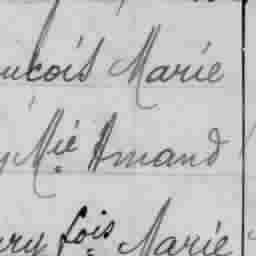 ncois Marie
y Mie Amand
ry fois Marie